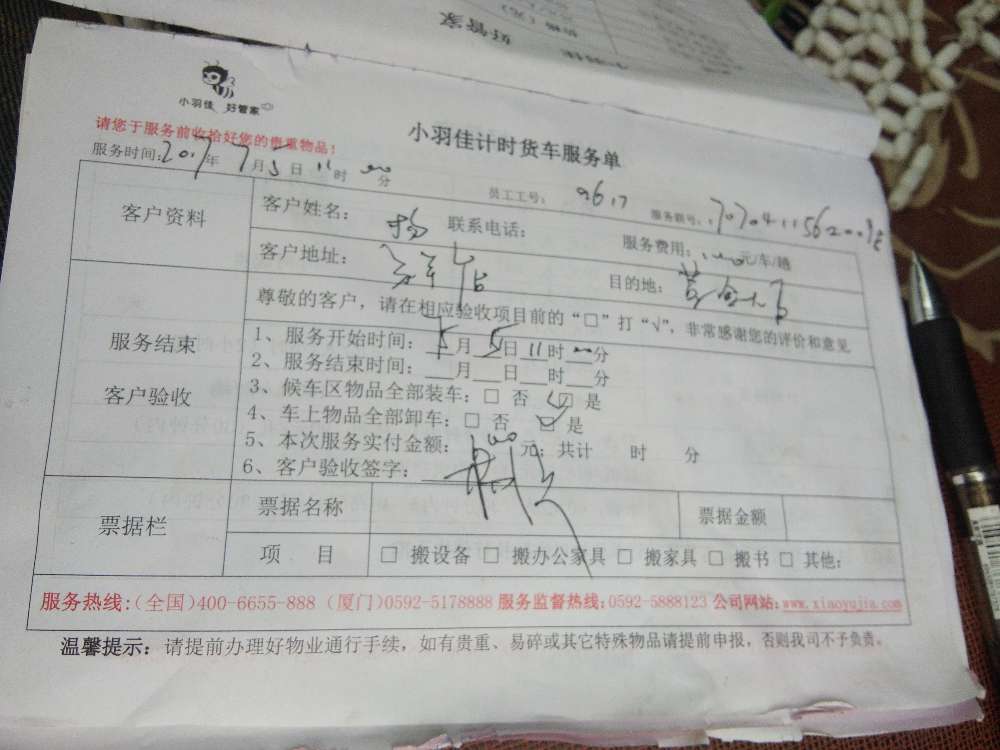 小羽佳 好管家
小羽佳计时货车服务单
请您于服务前收拾好您的贵重物品!
服务时间:2017年7月5日11时00分 员工工号: 9617 服务跟号:
客户资料 客户姓名: 杨 联系电话: 服务费用: 元/车/趟
客户地址: 目的地:
尊敬的客户,请在相应验收项目前的“□”打“√”,非常感谢您的评价和意见
服务结束
客户验收
1、服务开始时间: 月5日11时00分
2、服务结束时间:___月___日___时___分
3、候车区物品全部装车:□ 否 ☑ 是
4、车上物品全部卸车:□ 否 ☑ 是
5、本次服务实付金额: 元;共计 时 分
6、客户验收签字:
票据栏 票据名称 票据金额
项 目 □ 搬设备 □ 搬办公家具 □ 搬家具 □ 搬书 □ 其他:
服务热线:(全国)400-6655-888 (厦门)0592-5178888 服务监督热线:0592-5888123 公司网站:www.xiaoyujia.com
温馨提示:请提前办理好物业通行手续,如有贵重、易碎或其它特殊物品请提前申报,否则我司不予负责。